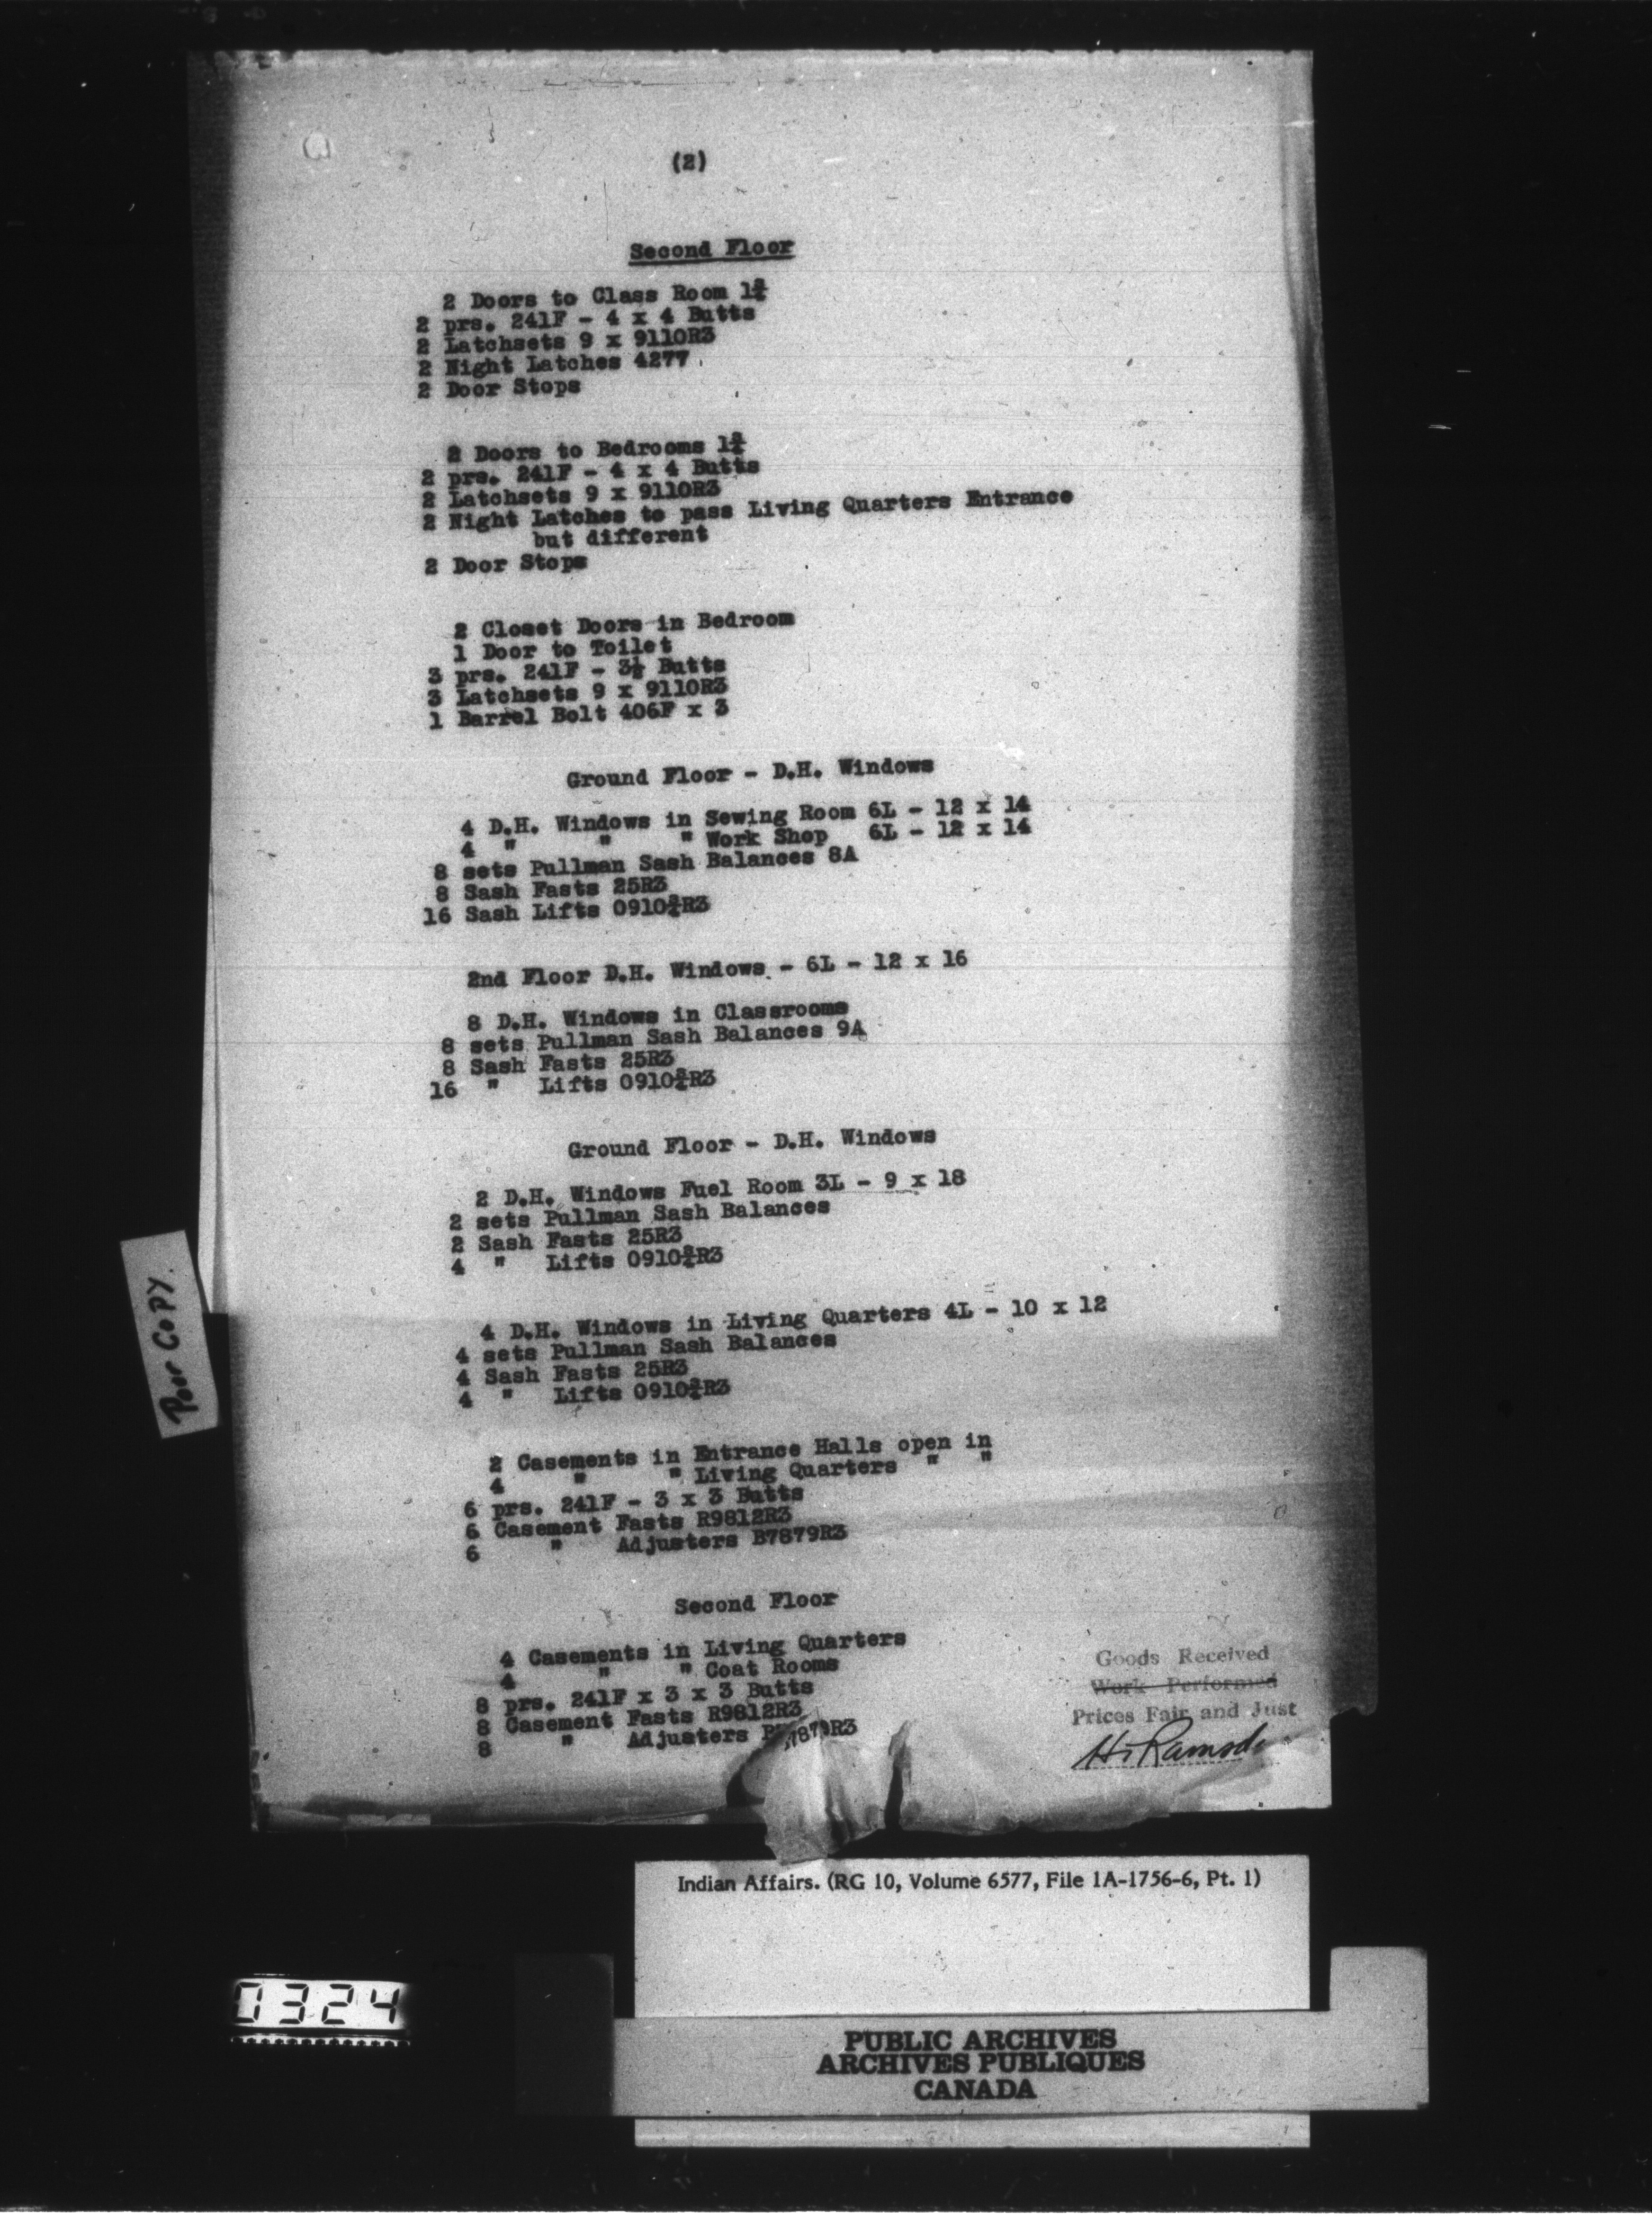 (2)
Second Floor
2 Doors to Class Room 1¾
2 prs. 241F - 4 x 4 Butts
2 Latchsets 9 x 9110R3
2 Night Latches 4277
2 Door Stops
2 Doors to Bedrooms 1¾
2 prs. 241F - 4 x 4 Butts
2 Latchsets 9 x 9110R3
2 Night Latches to pass Living Quarters Entrance
but different
2 Door Stops
2 Closet Doors in Bedroom
1 Door to Toilet
3 prs. 241F - 3½ Butts
3 Latchsets 9 x 9110R3
1 Barrel Bolt 406F x 3
Ground Floor - D.H. Windows
4 D.H. Windows in Sewing Room 6L - 12 x 14
4 " " " Work Shop 6L - 12 x 14
8 sets Pullman Sash Balances 8A
8 Sash Fasts 25R3
16 Sash Lifts 0910¾R3
2nd Floor D.H. Windows - 6L - 12 x 16
8 D.H. Windows in Classrooms
8 sets Pullman Sash Balances 9A
8 Sash Fasts 25R3
16 " Lifts 0910¾R3
Ground Floor - D.H. Windows
2 D.H. Windows Fuel Room 3L - 9 x 18
2 sets Pullman Sash Balances
2 Sash Fasts 25R3
4 " Lifts 0910¾R3
4 D.H. Windows in Living Quarters 4L - 10 x 12
4 sets Pullman Sash Balances
4 Sash Fasts 25R3
4 " Lifts 0910¾R3
2 Casements in Entrance Halls open in
4 " " Living Quarters " "
6 prs. 241F - 3 x 3 Butts
6 Casement Fasts R9812R3
6 " Adjusters B7879R3
Second Floor
4 Casements in Living Quarters
4 " " Coat Rooms
8 prs. 241F x 3 x 3 Butts
8 Casement Fasts R9812R3
8 " Adjusters
Goods Received
Work Performed
Prices Fair and Just
Poor Copy.
Indian Affairs. (RG 10, Volume 6577, File 1A-1756-6, Pt. 1)
0324
PUBLIC ARCHIVES
ARCHIVES PUBLIQUES
CANADA